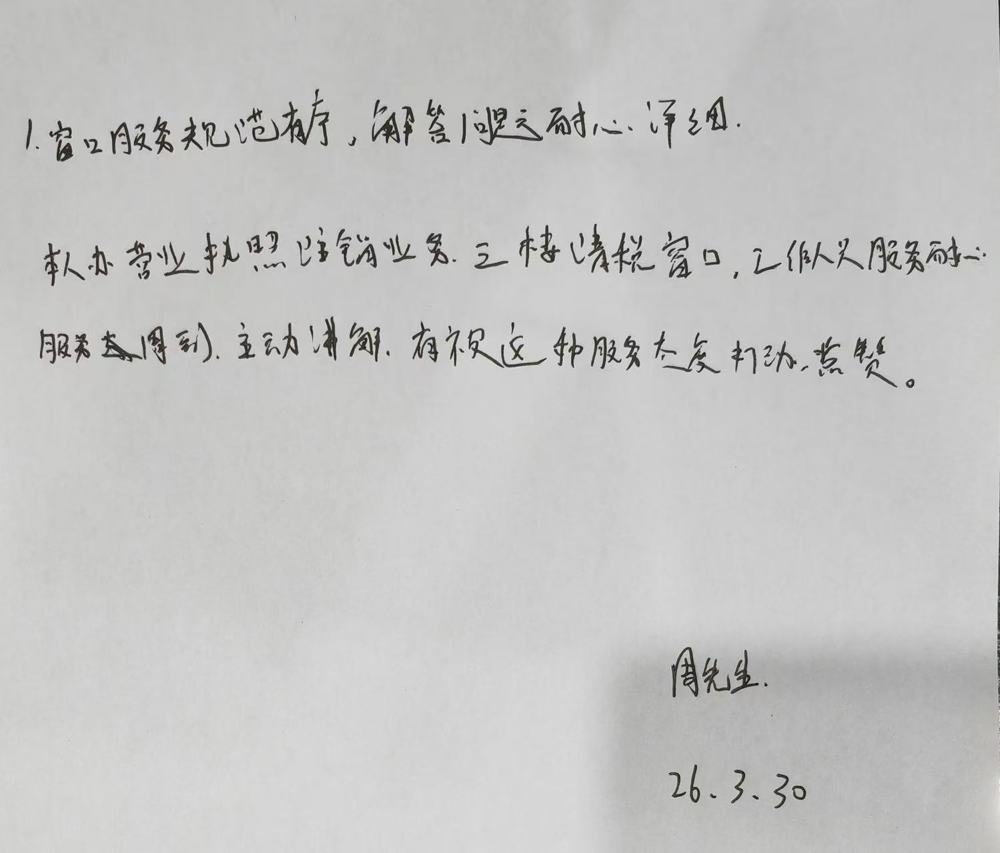 1.窗口服务规范有序，解答问题耐心.详细.
本人办营业执照注销业务.三楼清税窗口，工作人员服务耐心.
服务周到.主动讲解.有被这种服务态度打动.点赞。
周先生.
26.3.30